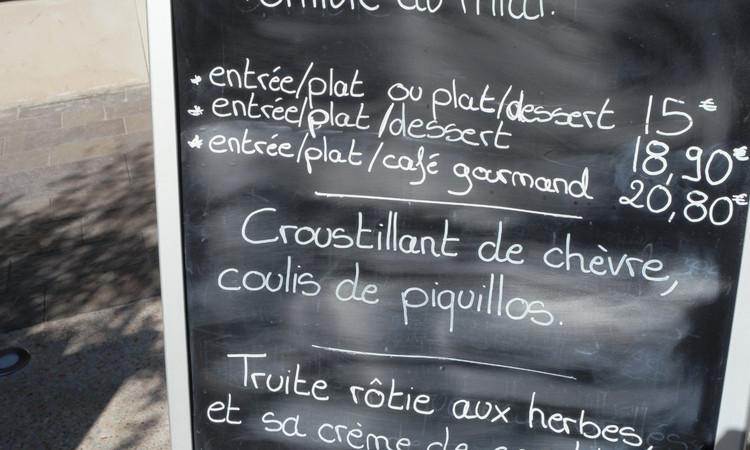 du midi.
* entrée/plat ou plat/dessert 15€
* entrée/plat/dessert 18,90€
* entrée/plat/café gourmand 20,80€
Croustillant de chèvre,
coulis de piquillos.
Truite rôtie aux herbes,
et sa crème de